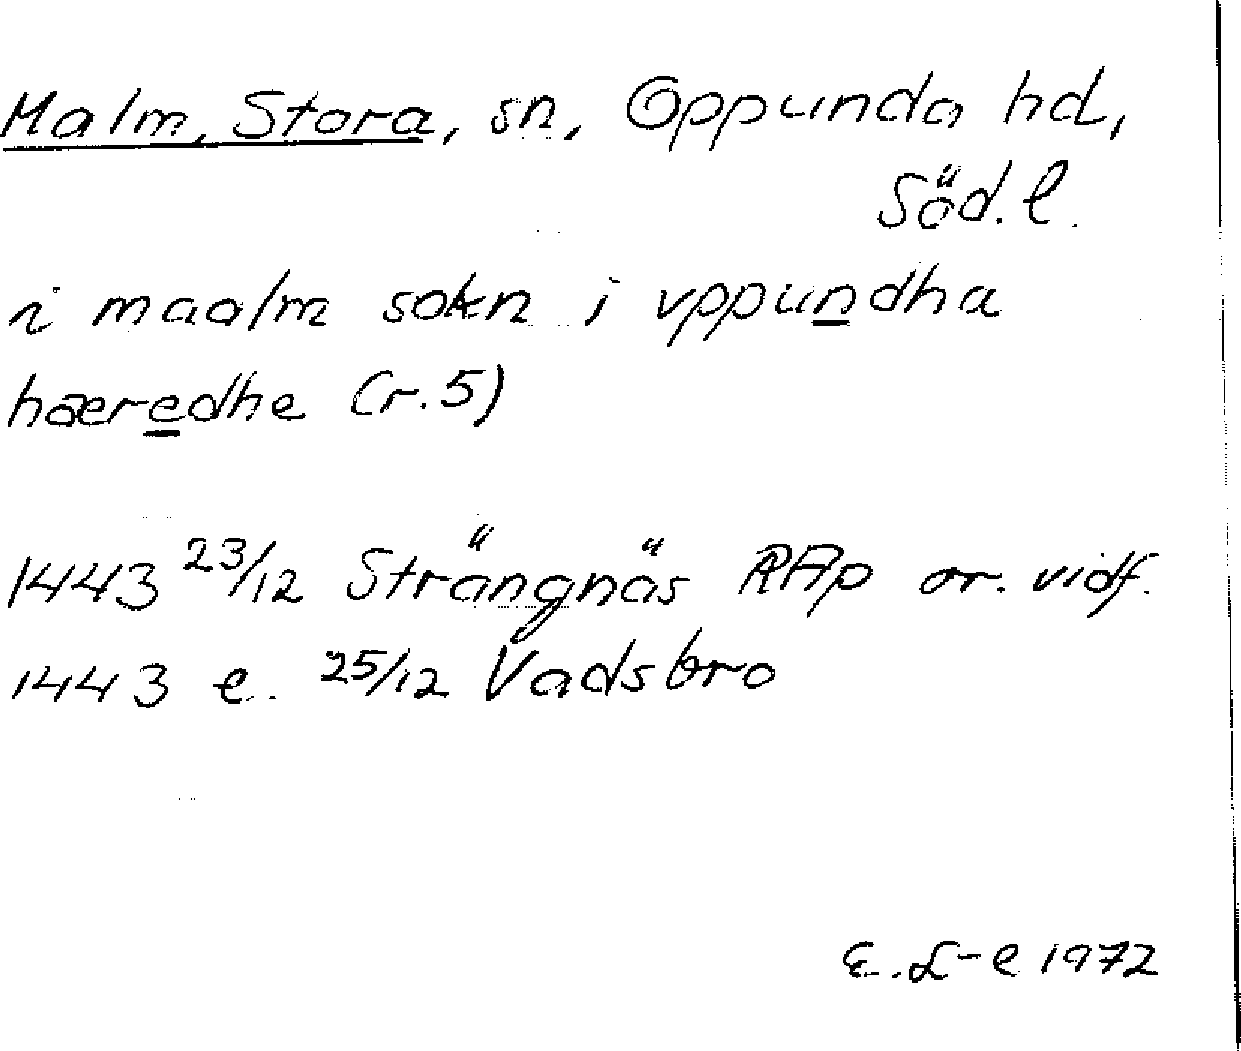 Malm, Stora, sn, Oppunda hd,
Söd. l.
i maalm sokn i vppundha
hæredhe (r. 5)
1443 23/12 Strängnäs RAp or. vidf.
1443 e. 25/12 Vadsbro
E. L-e 1972